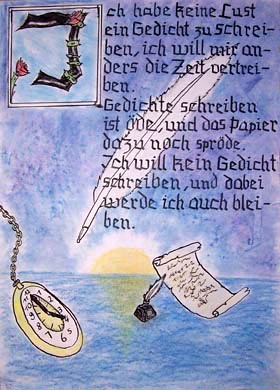 Ich habe keine Lust
ein Gedicht zu schrei-
ben, ich will mir an-
ders die Zeit vertrei-
ben.
Gedichte schreiben
ist öde, und das Papier
dazu noch spröde.
Ich will kein Gedicht
schreiben, und dabei
werde ich auch blei-
ben.